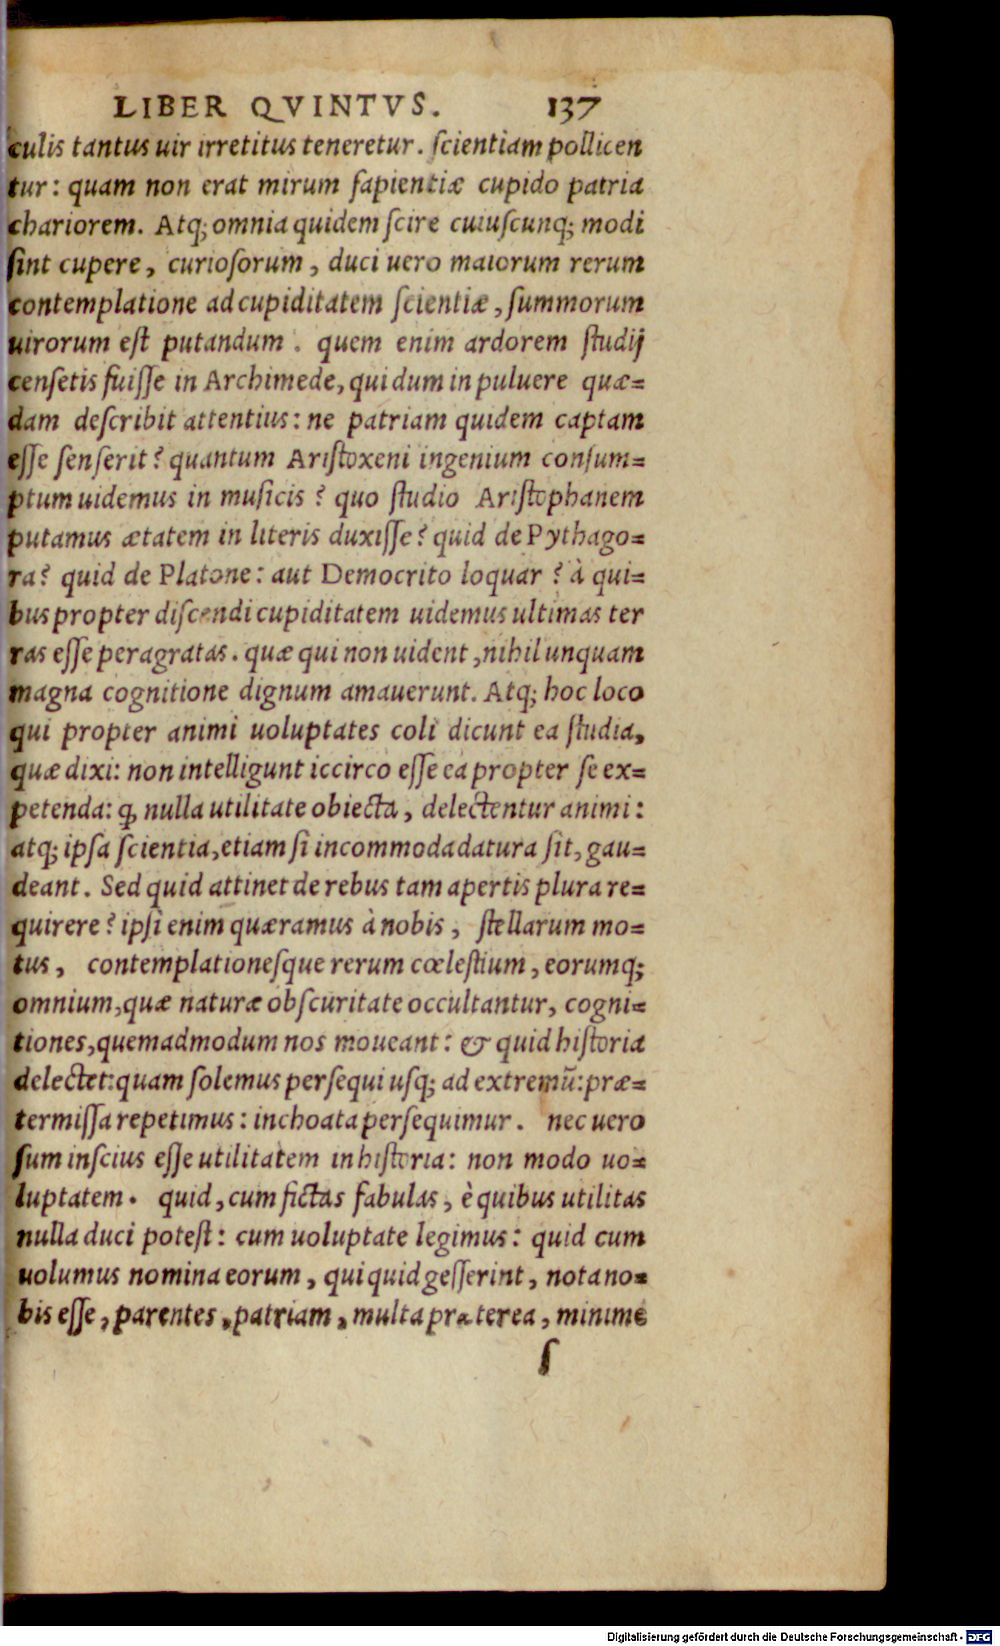 LIBER QVINTVS. 137
culis tantus uir irretitus teneretur. scientiam pollicen
tur: quam non erat mirum sapientiæ cupido patria
chariorem. Atq; omnia quidem scire cuiuscunq; modi
sint cupere, curiosorum, duci uero maiorum rerum
contemplatione ad cupiditatem scientiæ, summorum
uirorum est putandum. quem enim ardorem studij
censetis fuisse in Archimede, qui dum in puluere quæ=
dam describit attentius: ne patriam quidem captam
esse senserit? quantum Aristoxeni ingenium consum=
ptum uidemus in musicis? quo studio Aristophanem
putamus ætatem in literis duxisse? quid de Pythago=
ra? quid de Platone: aut Democrito loquar? à qui=
bus propter discendi cupiditatem uidemus ultimas ter
ras esse peragratas. quæ qui non uident, nihil unquam
magna cognitione dignum amauerunt. Atq; hoc loco
qui propter animi uoluptates coli dicunt ea studia,
quæ dixi: non intelligunt iccirco esse ea propter se ex=
petenda: ꝙ nulla utilitate obiecta, delectentur animi:
atq; ipsa scientia, etiam si incommoda datura sit, gau=
deant. Sed quid attinet de rebus tam apertis plura re=
quirere? ipsi enim quæramus à nobis, stellarum mo=
tus, contemplationesque rerum cœlestium, eorumq;
omnium, quæ naturæ obscuritate occultantur, cogni=
tiones, quemadmodum nos moueant: & quid historia
delectet: quam solemus persequi usq; ad extremū: præ=
termissa repetimus: inchoata persequimur. nec uero
sum inscius esse utilitatem in historia: non modo uo=
luptatem. quid, cum fictas fabulas, è quibus utilitas
nulla duci potest: cum uoluptate legimus: quid cum
uolumus nomina eorum, qui quid gesserint, nota no=
bis esse, parentes, patriam, multa præterea, minime
s
Digitalisierung gefördert durch die Deutsche Forschungsgemeinschaft - DFG